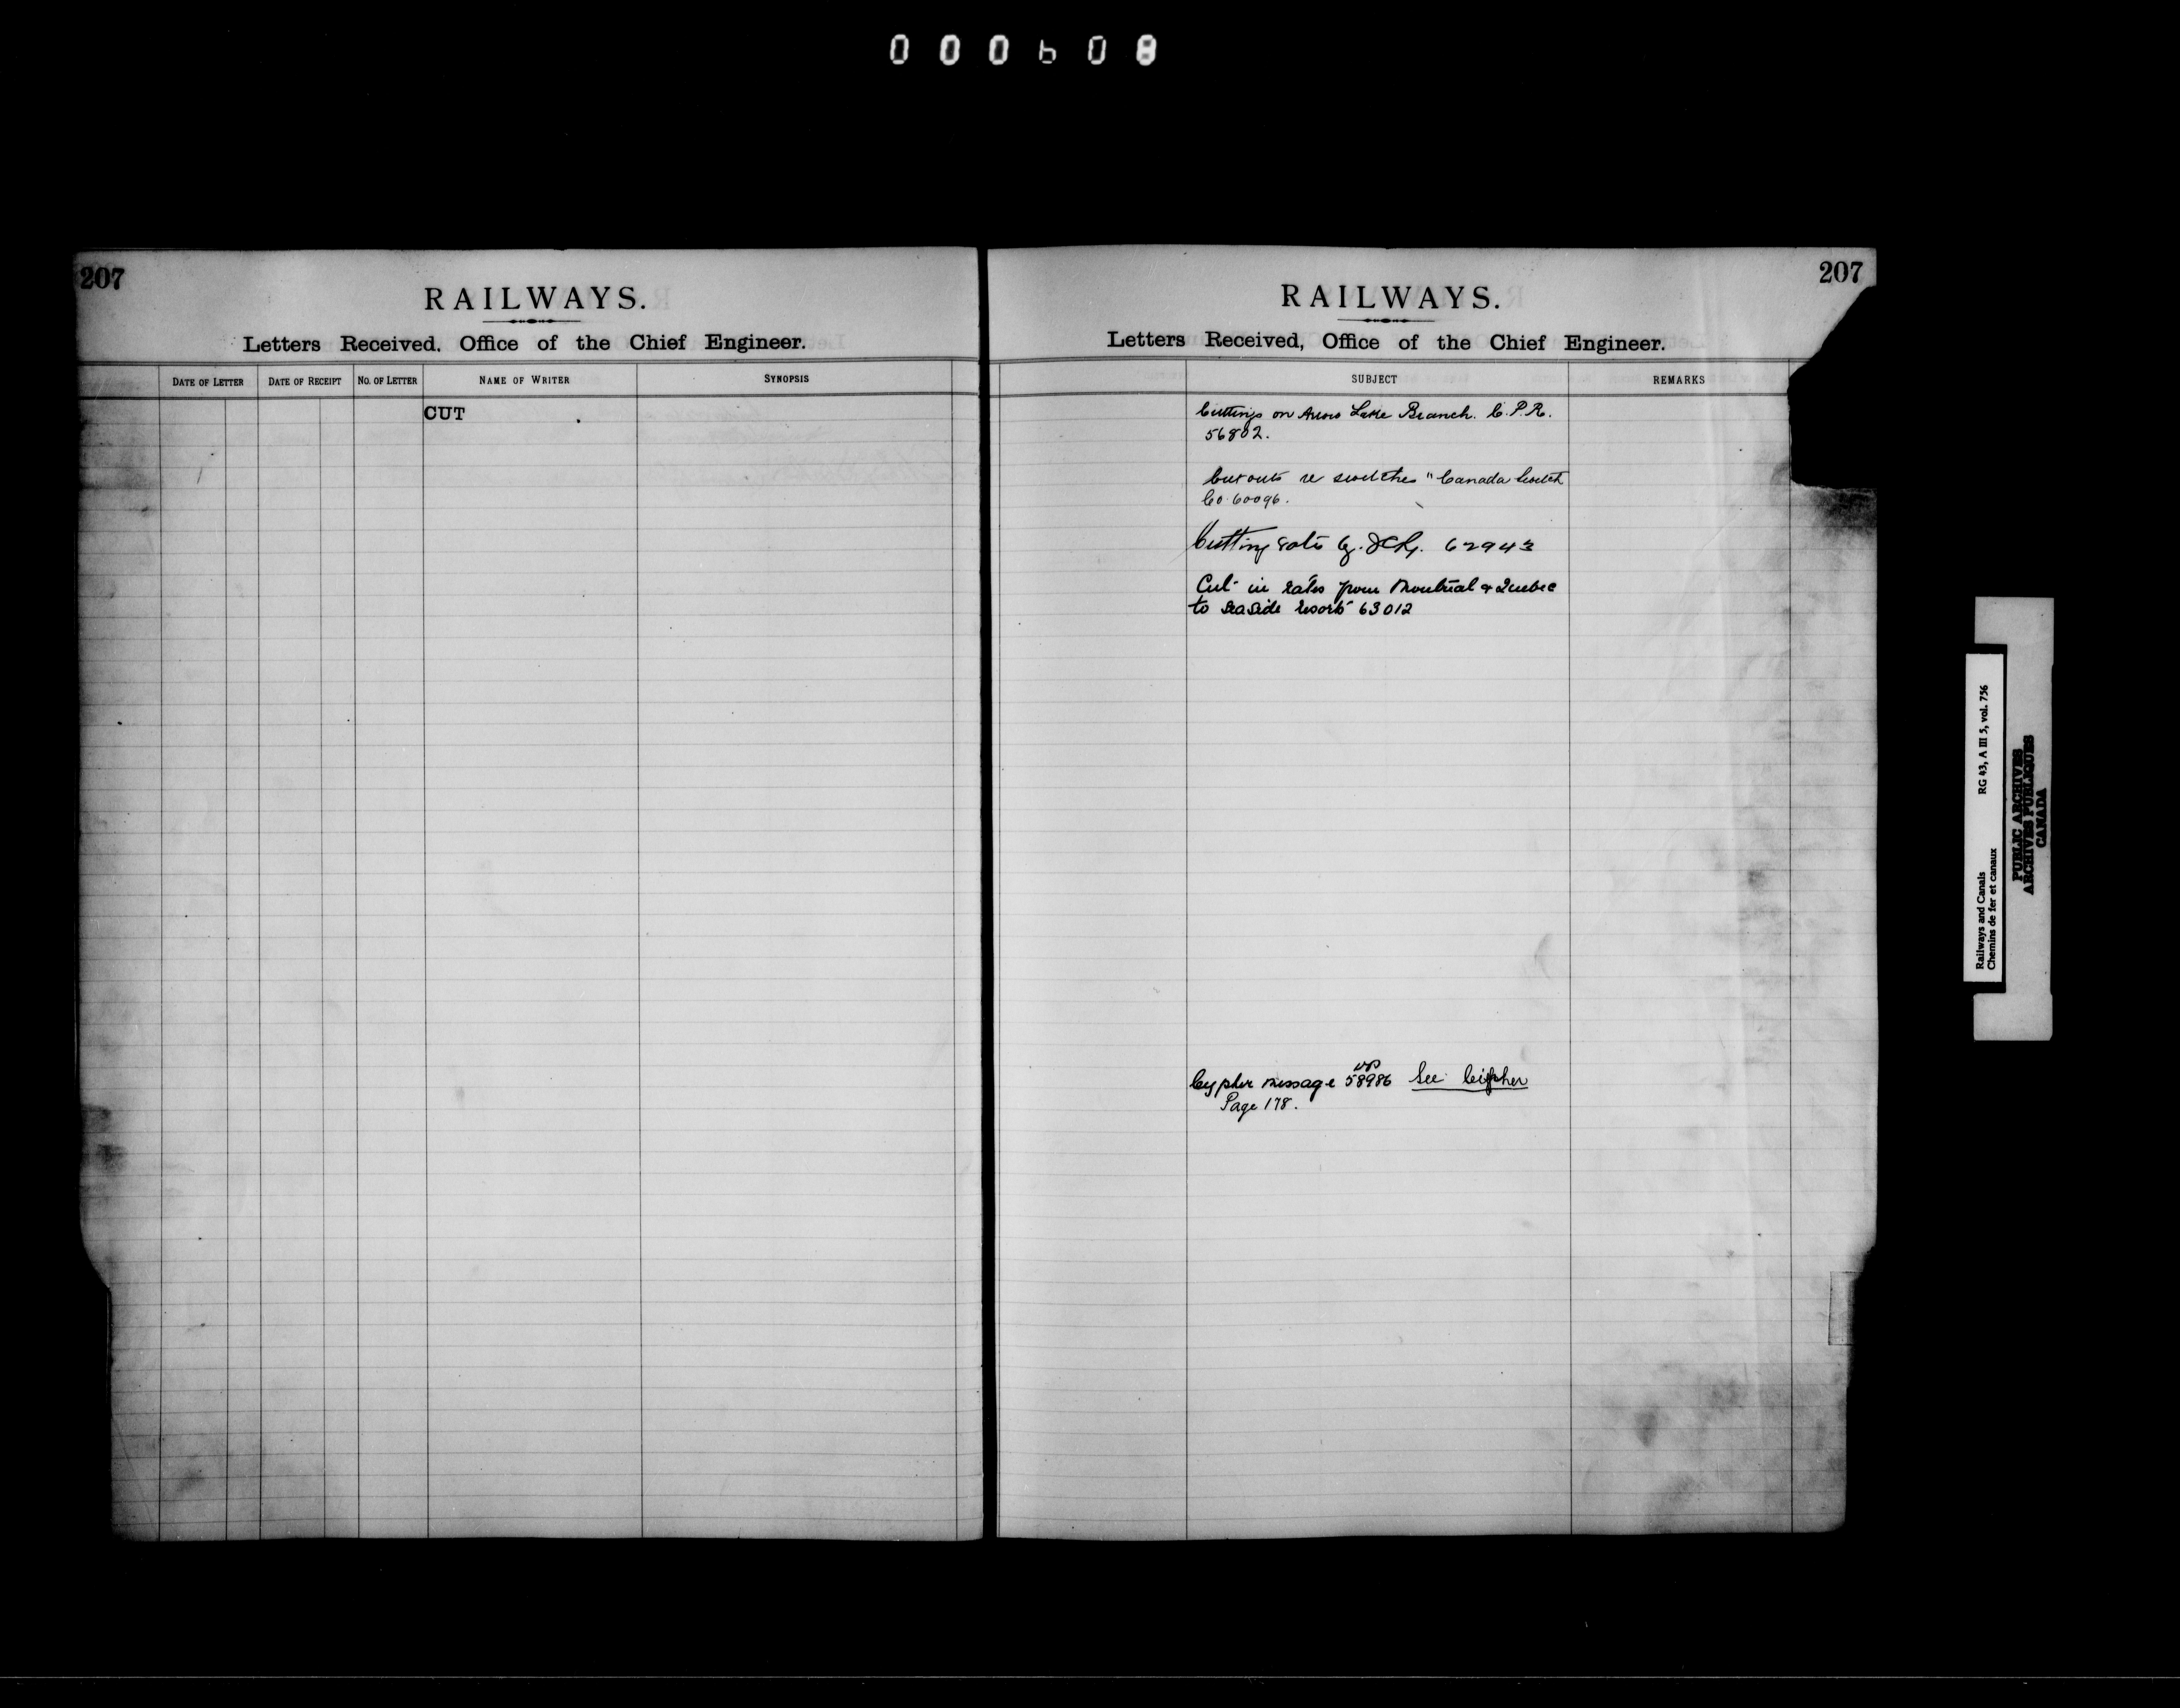 000608
207
RAILWAYS.
Letters Received. Office of the Chief Engineer.
DATE OF LETTER DATE OF RECEIPT NO. OF LETTER NAME OF WRITER SYNOPSIS
CUT
207
RAILWAYS.
Letters Received, Office of the Chief Engineer.
SUBJECT REMARKS
Cuttings on Arrow Lake Branch. C.P.R.
56802.
Cut outs re switches "Canada Switch
Co 60096.
Cutting rates 62943
Cut in rates from Montreal & Quebec
to Seaside resorts 63012
Cypher message 58986 See Cipher
Page 178.
Railways and Canals RG 43, A III 5, vol. 756
Chemins de fer et canaux
PUBLIC ARCHIVES
ARCHIVES PUBLIQUES
CANADA